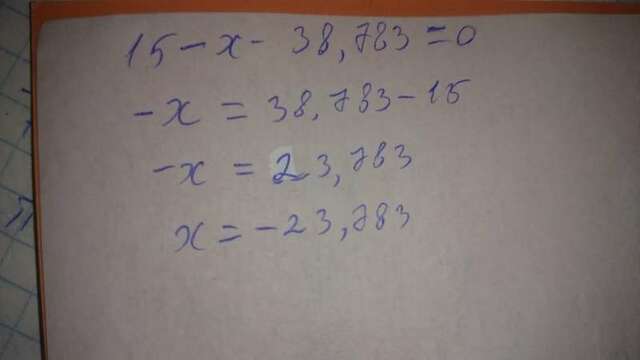 15-x-38,783=0
-x=38,783-15
-x=23,783
x=-23,783